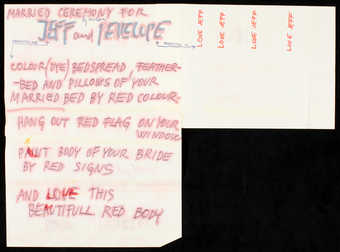 MARRIED CEREMONY FOR
JEFF and PENELOPE
COLOUR (DYE) BEDSPREAD, FEATHER-
-BED AND PILLOWS OF YOUR
MARRIED BED BY RED COLOUR.
HANG OUT RED FLAG ON YOUR
WINDOW
PAINT BODY OF YOUR BRIDE
BY RED SIGNS
AND LOVE THIS
BEAUTIFULL RED BODY
LOVE JEFF
LOVE JEFF
LOVE JEFF
LOVE JEFF